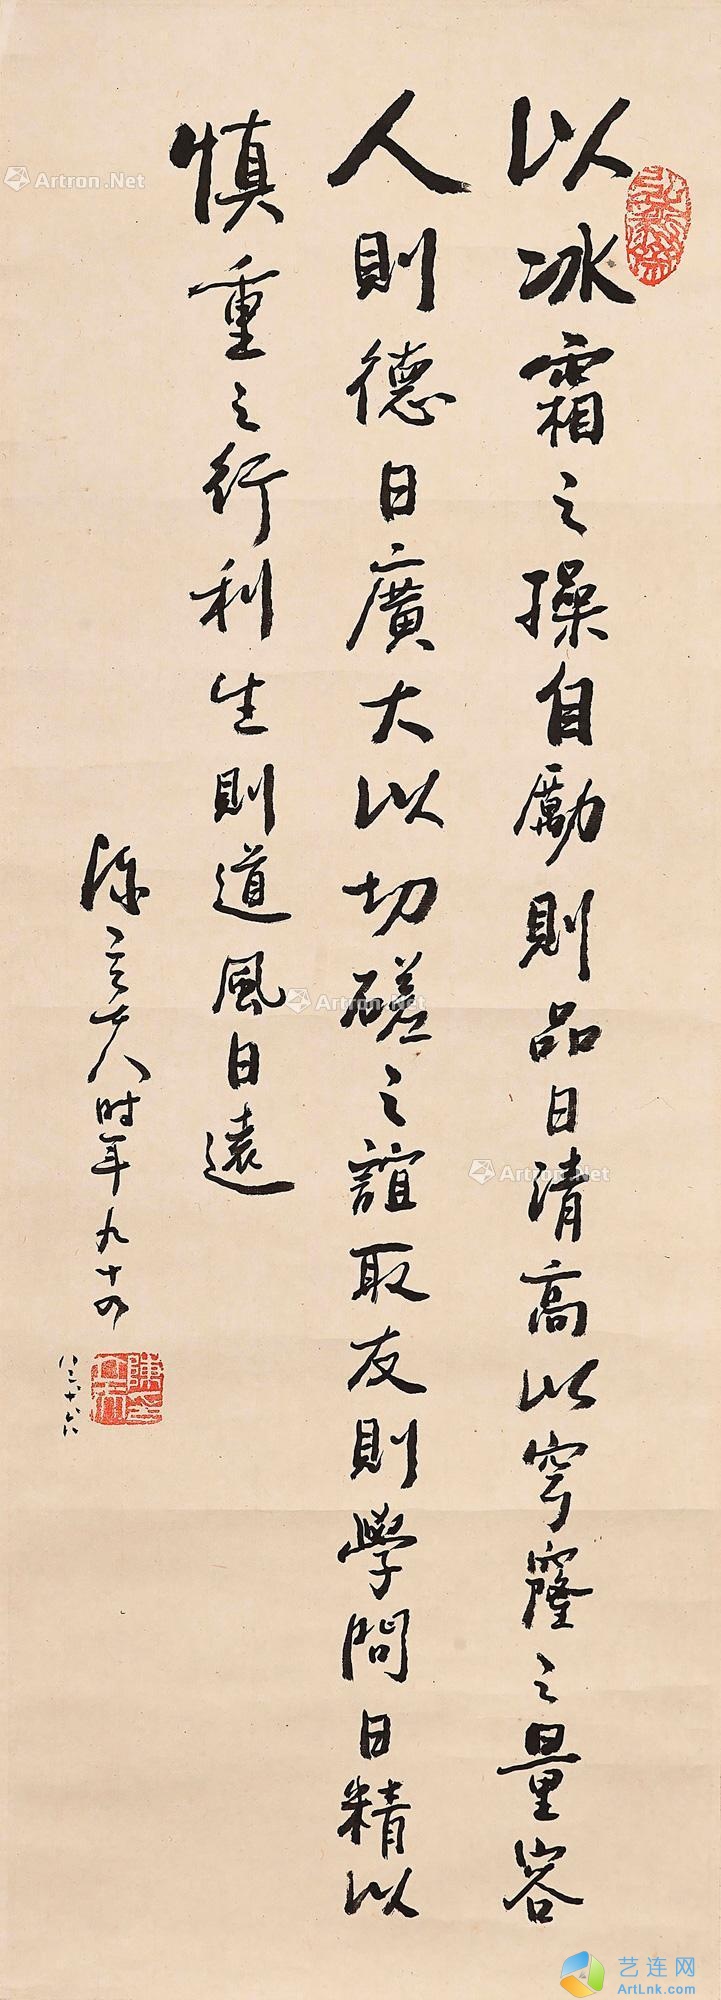 以冰霜之操自勵則品日清高以穹窿之量容
人則德日廣大以切磋之誼取友則學問日精以
慎重之行利生則道風日遠
陳立夫時年九十四
Artron.Net
Artron.Net
Artron.Net
艺连网
ArtLnk.com